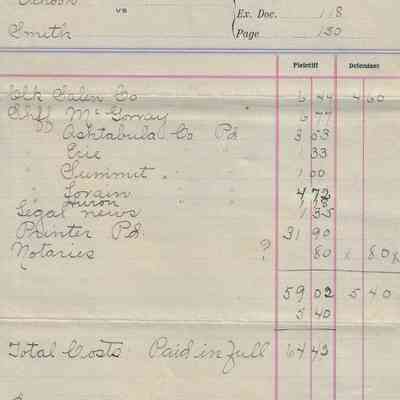 vs
Smith
Ex. Doc. 118
Page 130
Plaintiff Defendant
Clk Salen Co 6 44 4 60
Shff McGorrey 6 77
" Ashtabula Co Pd 3 53
" Erie " 1 33
" Summit " 1 00
" Lorain " 4 72
" Huron "
Legal news 1 35
Printer Pd 31 90
Notaries ? 80 80
59 02 5 40
5 40
Total Costs Paid in full 64 43